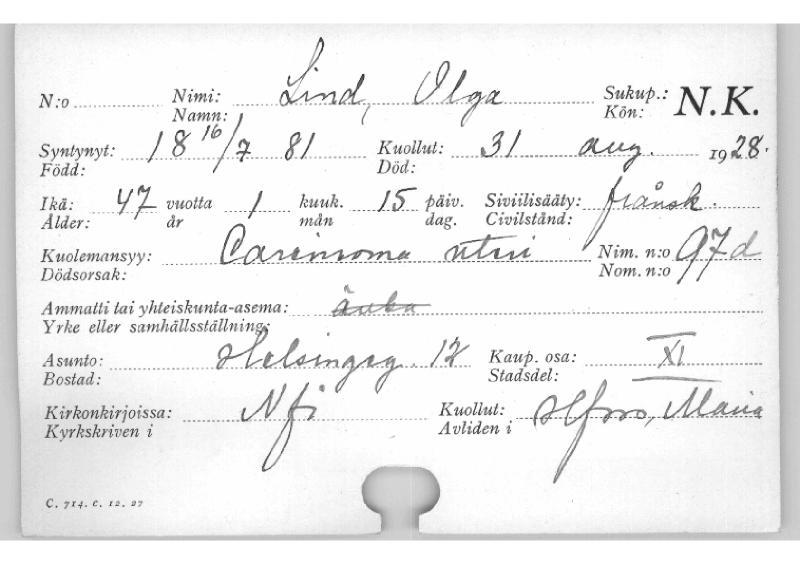 N:o Nimi: Lind, Olga Sukup.: N.K.
Namn: Kön:
Syntynyt: 18 16/7 81 Kuollut: 31 aug. 1928.
Född: Död:
Ikä: 47 vuotta 1 kuuk. 15 päiv. Siviilisääty: frånsk.
Ålder: år mån dag. Civilstånd:
Kuolemansyy: Carcinoma uteri Nim. n:o 97d
Dödsorsak: Nom. n:o
Ammatti tai yhteiskunta-asema: änka
Yrke eller samhällsställning:
Asunto: Helsingeg. 12 Kaup. osa: XI
Bostad: Stadsdel:
Kirkonkirjoissa: Nfi Kuollut: Hfors, Maria
Kyrkskriven i Avliden i
C. 714. C. 12. 27